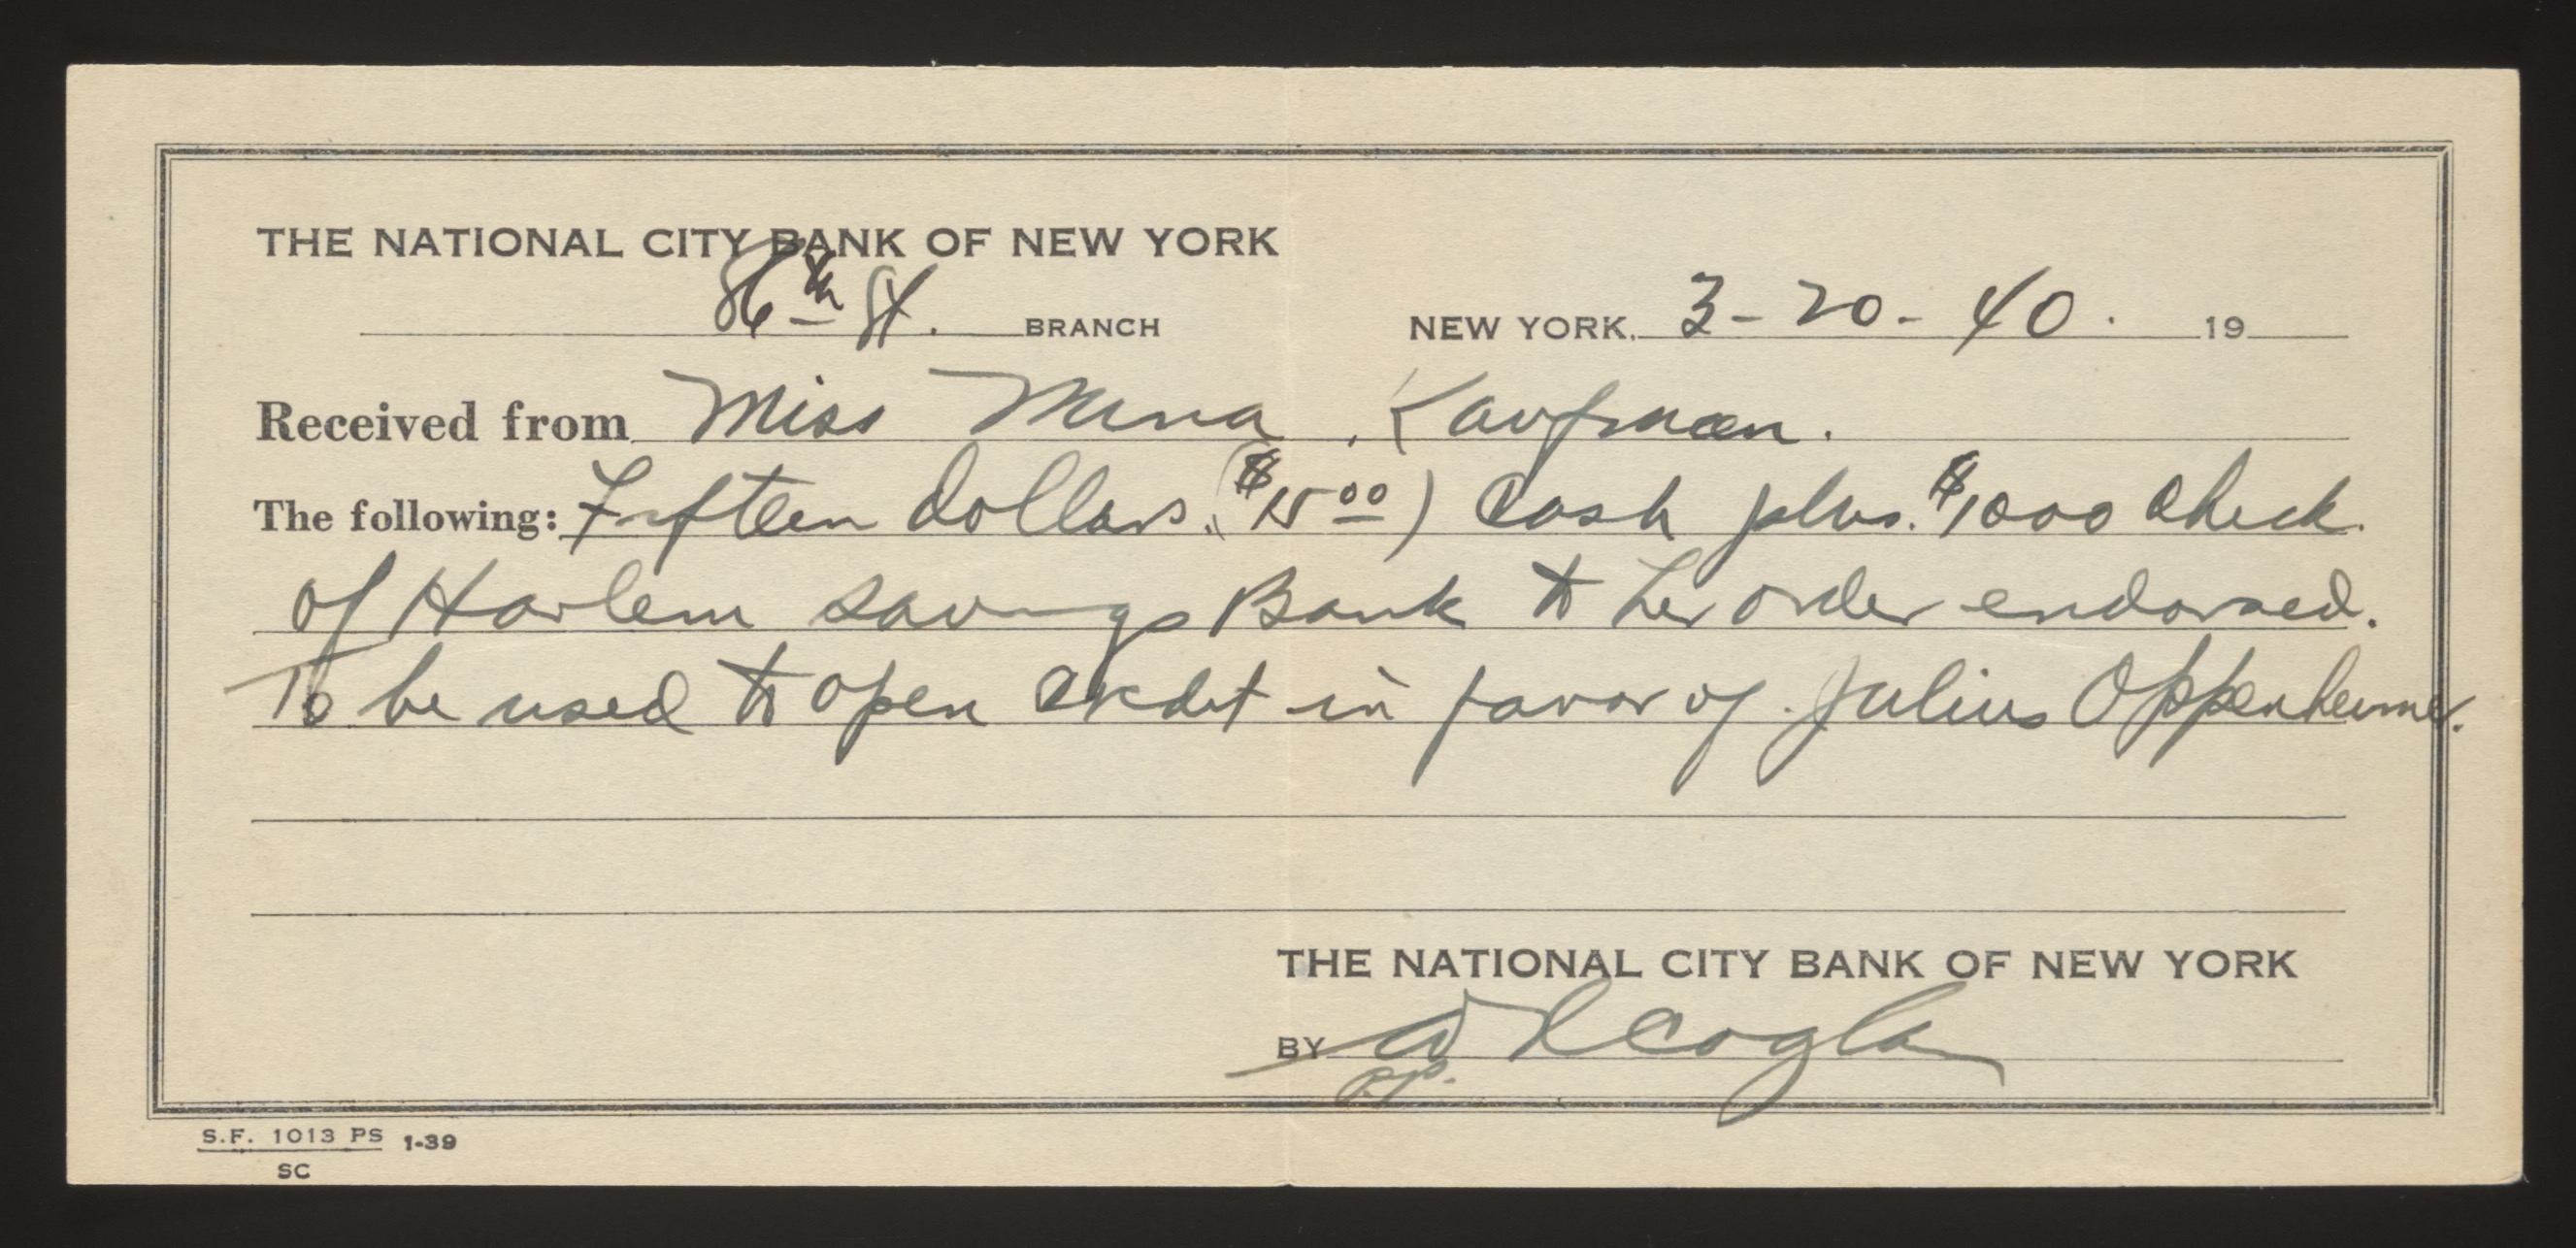 THE NATIONAL CITY BANK OF NEW YORK
86th St. BRANCH NEW YORK, 3-20-40. 19
Received from Miss Mina Kaufman.
The following: Fifteen dollars ($15.00) Cash plus $1000 Check.
of Harlem Savings Bank to her order endorsed.
To be used to open credit in favor of Julius Oppenheimer.
THE NATIONAL CITY BANK OF NEW YORK
BY
S.F. 1013 PS 1-39
SC